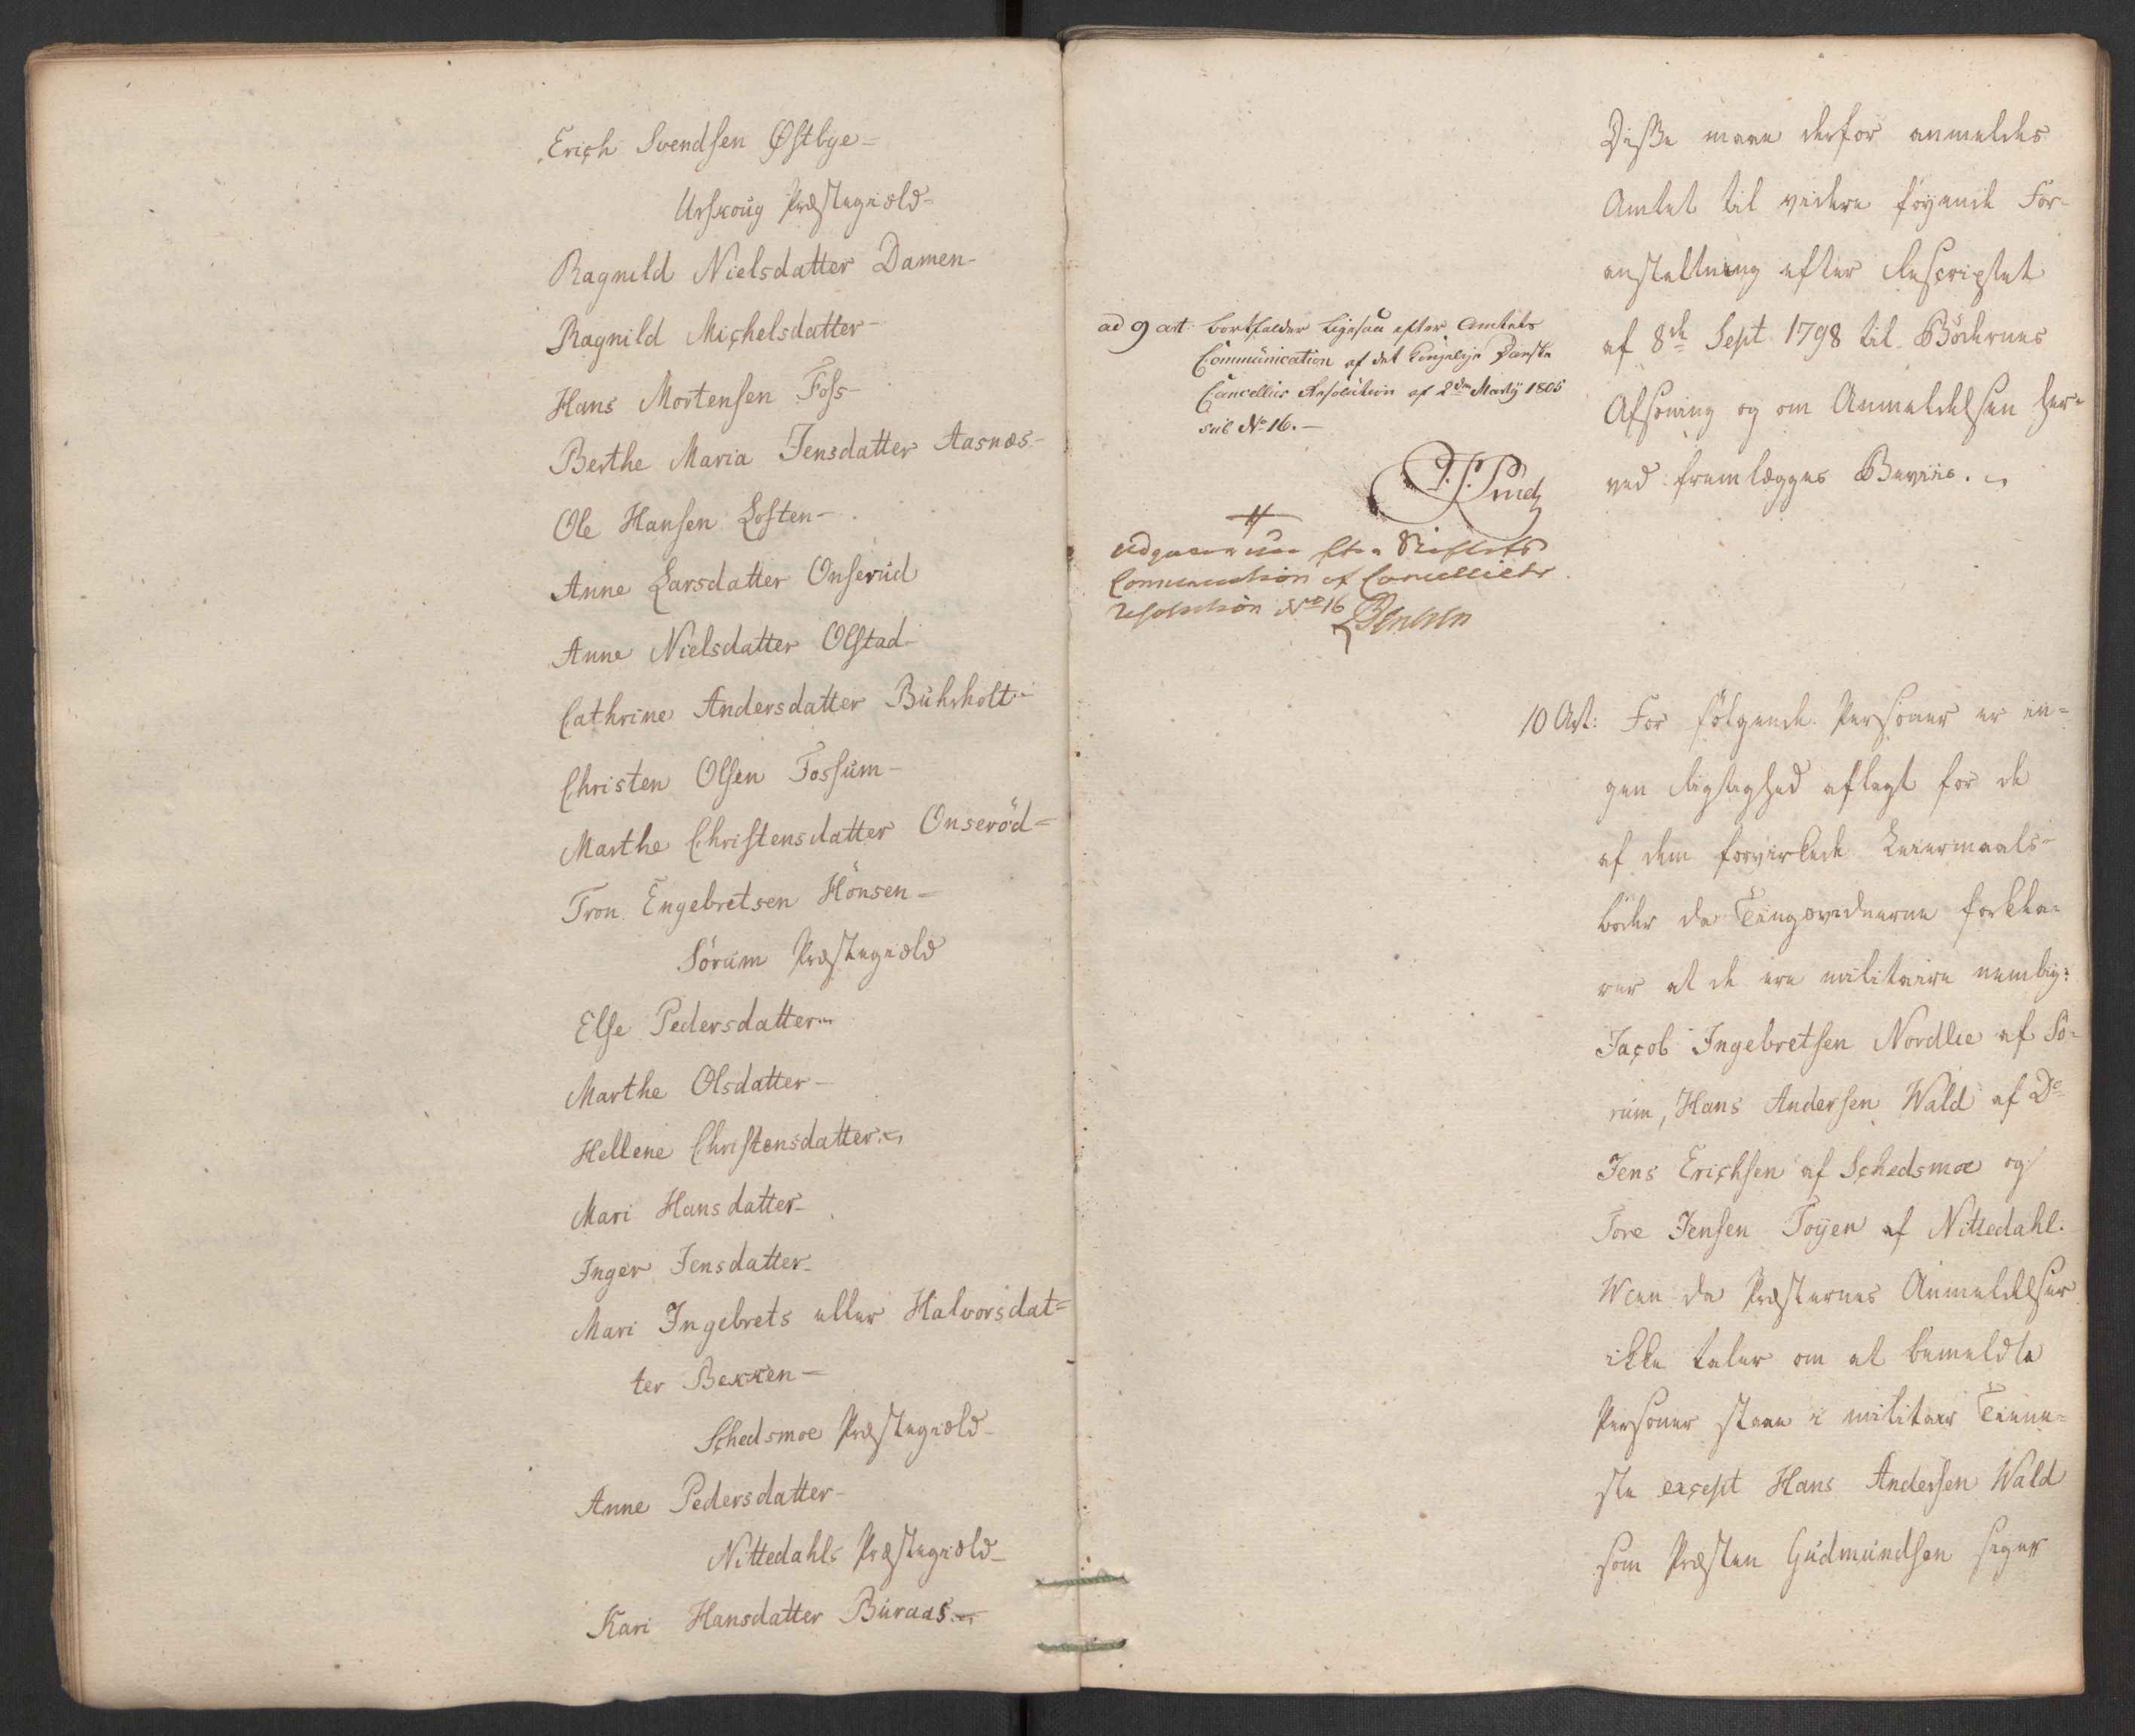 Erich Svendsen Østbye-
Urskoug Præstegiæld-
Ragnild Nielsdatter Damen-
Ragnild Michelsdatter-
Hans Mortensen Foss-
Berthe Maria Jensdatter Aasnæs-
Ole Hansen Losten-
Anne Larsdatter Onserud
Anne Nielsdatter Olstad-
Cathrine Andersdatter Buhrholt-
Christen Olsen Fossum-
Marthe Christensdatter Onseröd=
Tron Engebretsen Hönsen-
Sörum Præstegiæld
Else Pedersdatter-
Marthe Olsdatter-
Hellene Christensdatter-
Mari Hansdatter-
Inger Jensdatter-
Mari Ingebrets eller Halvorsdat=
ter Bekken-
Schedsmoe Præstegiæld-
Anne Pedersdatter-
Nittedahls Præstegiæld-
Kari Hansdatter Buraas-
ad 9 art: bortfalder ligesaa efter Amtets
Communication af det Kongelige Danske
Cancellies Resolution af 2den Martij 1805
sub No 16.-
Communication af Cancelliets
resolution No 16
Disse maae derfor anmeldes
Amtet til videre föyende For-
anstaltning efter Rescriptet
af 8de Sept 1798 til Bödernes
Afsoning og om Anmeldelsen her=
ved fremlægges Beviis.
10 Art: For fölgende Personer er in=
gen Rigtighed aflagt for de
af dem forvirkede Leiermaals-
böder da Tingsvidnerne forkla=
rer at de ere militaire nemlig:
Jacob Ingebretsen Nordlie af Sö=
rum, Hans Andersen Wald af Do
Jens Erichsen af Schedsmoe og
Tore Jensen Toyen af Nittedahl.
Men da Præsternes Anmeldelser
ikke taler om at bemeldte
Personer staae i militair Tiene=
ste except Hans Andersen Wald
som Præsten Gudmundsen siger